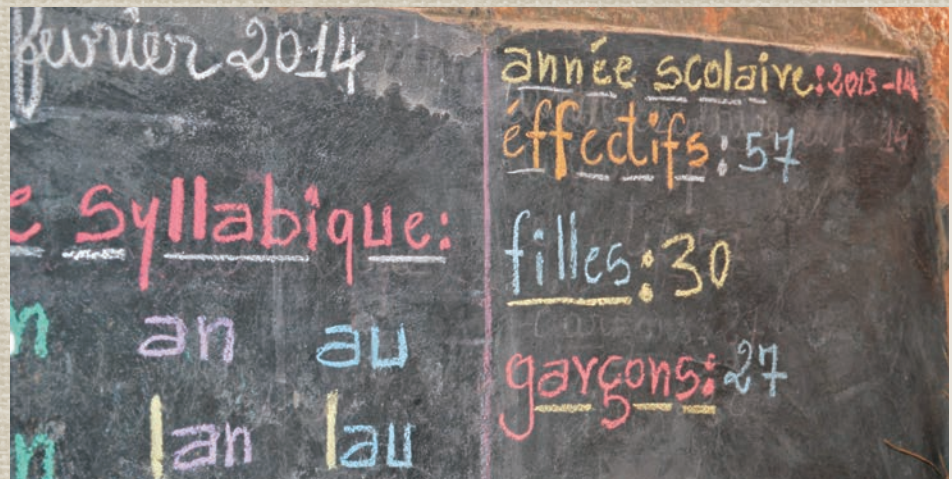 février 2014
e Syllabique:
n an au
n lan lau
année scolaire: 2013-14
éffectifs: 57
filles: 30
garçons: 27